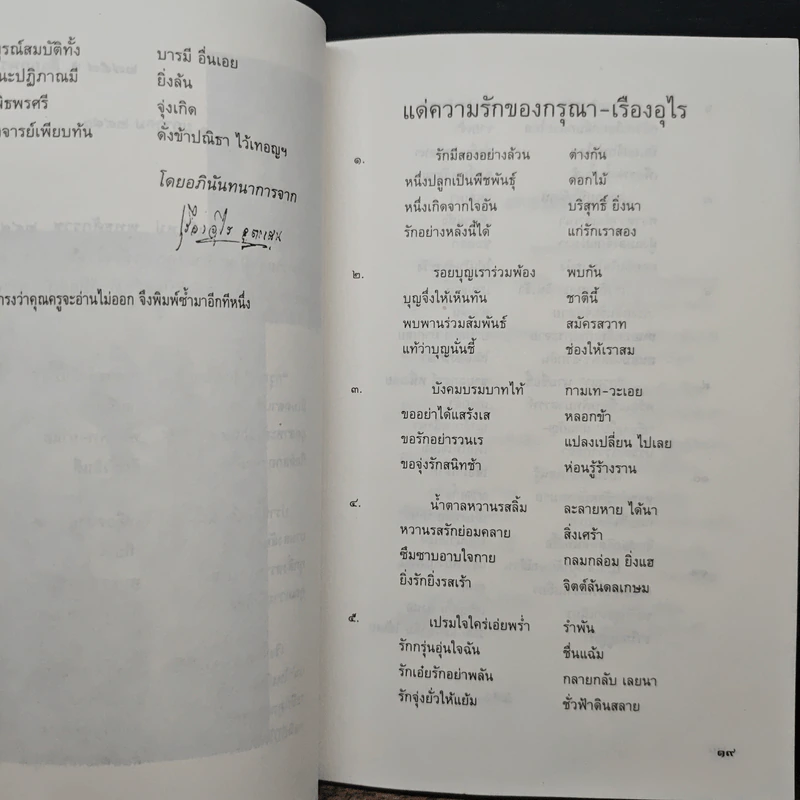 รณ์สมบัติทั้ง บารมี อื่นเอย
นะปฏิภาณมี ยิ่งล้น
พิธพรศรี จุ่งเกิด
จารย์เพียบทัน ดั่งข้าปณิธา ไว้เทอญฯ
โดยอภินันทนาการจาก
เรืองอุไร
กรงว่าคุณครูจะอ่านไม่ออก จึงพิมพ์ซ้ำมาอีกทีหนึ่ง
แด่ความรักของกรุณา-เรืองอุไร
๑. รักมีสองอย่างล้วน ต่างกัน
หนึ่งปลูกเป็นพืชพันธุ์ ดอกไม้
หนึ่งเกิดจากใจอัน บริสุทธิ์ ยิ่งนา
รักอย่างหลังนี้ได้ แก่รักเราสอง
๒. รอยบุญเราร่วมพ้อง พบกัน
บุญจึ่งให้เห็นทัน ชาตินี้
พบพานร่วมสัมพันธ์ สมัครสวาท
แท้ว่าบุญนั่นชี้ ช่องให้เราสม
๓. บังคมบรมบาทไท้ กามเท-วะเอย
ขออย่าได้แสร้งเส หลอกข้า
ขอรักอย่ารวนเร แปลงเปลี่ยน ไปเลย
ขอจุ่งรักสนิทช้า ห่อนรู้ร้างราน
๔. น้ำตาลหวานรสลิ้ม ละลายหาย ได้นา
หวานรสรักย่อมคลาย สิ่งเศร้า
ซึมซาบอาบใจกาย กลมกล่อม ยิ่งแฮ
ยิ่งรักยิ่งรสเร้า จิตต์ล้นดลเกษม
๕. เปรมใจใคร่เอ่ยพร่ำ รำพัน
รักกรุ่นอุ่นใจฉัน ชื่นแฉ้ม
รักเอ๋ยรักอย่าพลัน กลายกลับ เลยนา
รักจุ่งยั่วให้แย้ม ชั่วฟ้าดินสลาย
๑๙